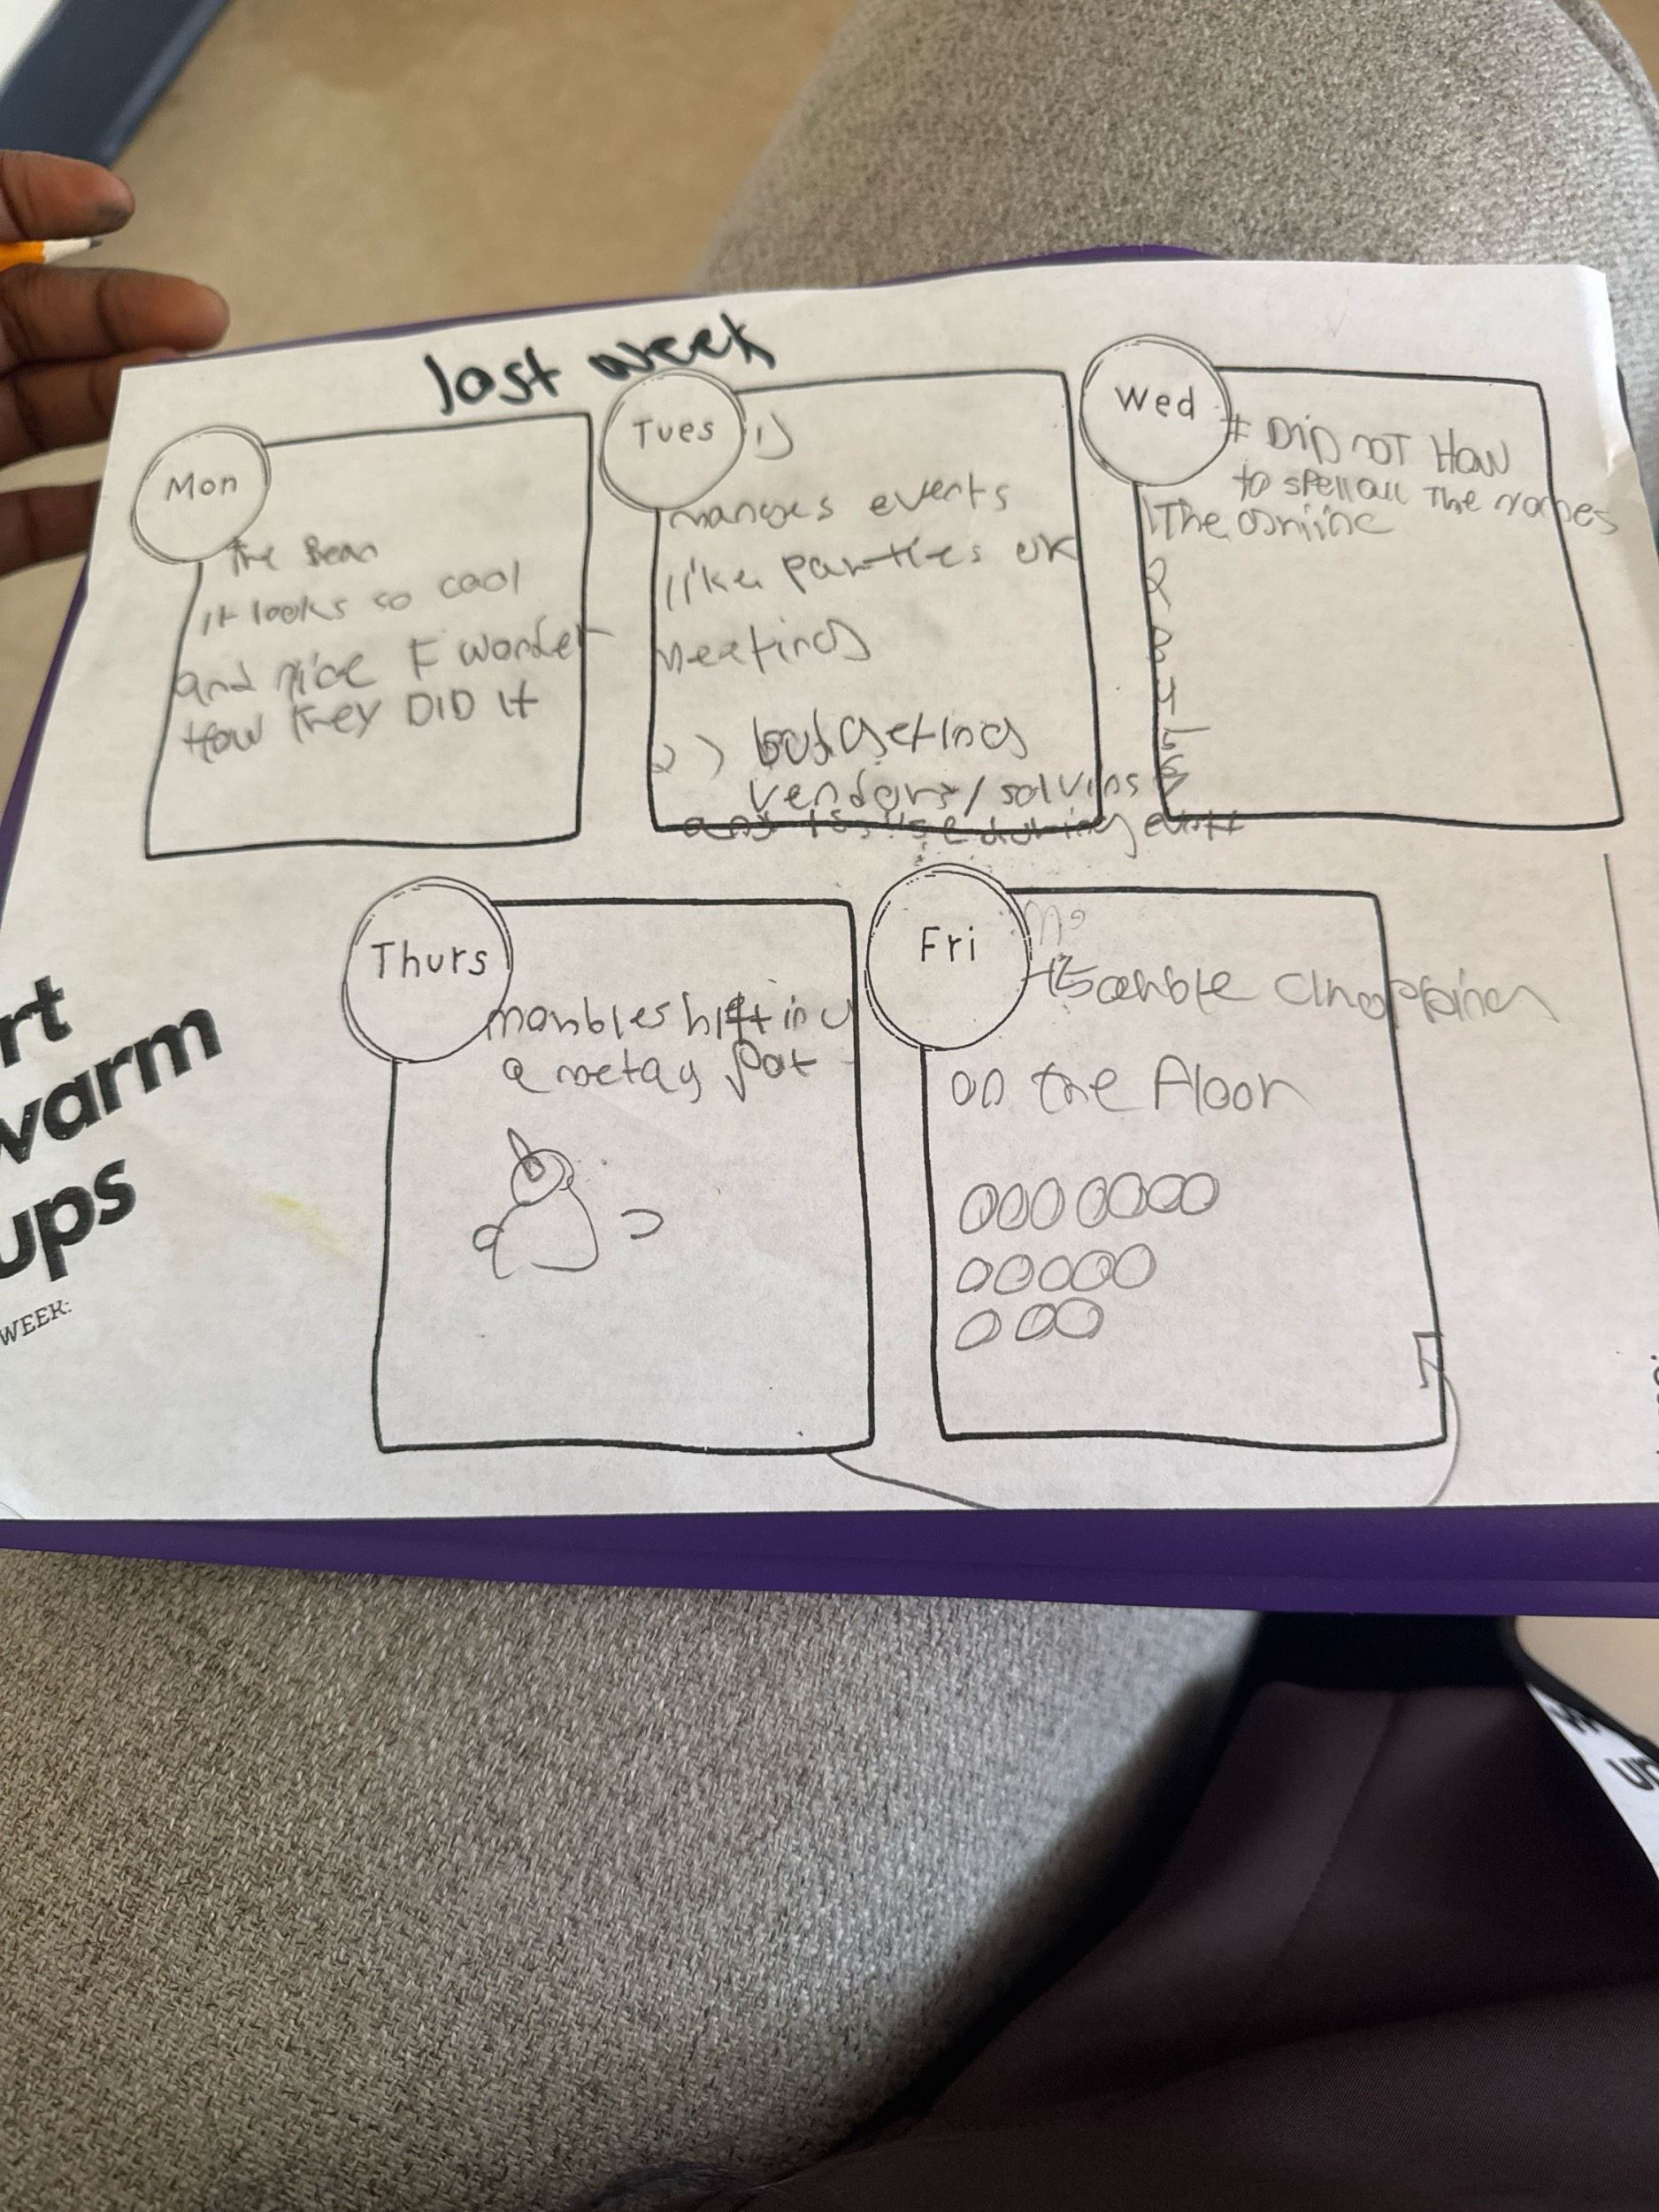 last week
Mon
the Bean
it looks so cool
and nice I wonder
How they DID it
Tues
1)
manages events
like parties or
meetings
2) budgeting
vendors/solving
and issuse during event
Wed
# DiD NOT HOW
to spell all The names
1 The
2
3
4
5
6
Thurs
marbles hitting
a metag pot
Fri
dropping
on the floor
rt
warm
ups
WEEK: